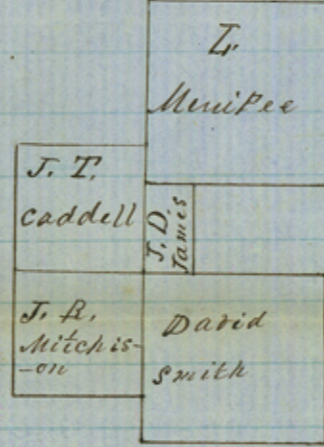 L.
Menifee
J. T.
Caddell
J. D.
James
J. R.
Mitchis-
-on
David
Smith